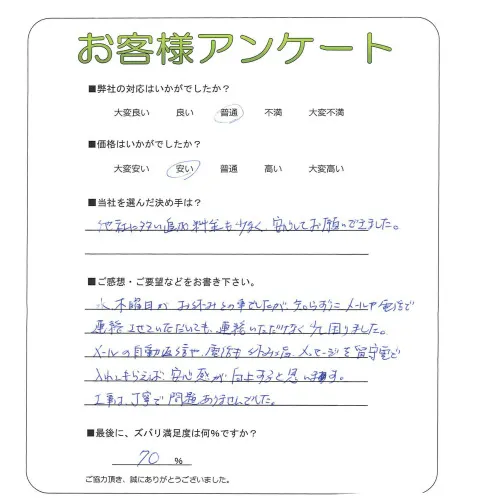 お客様アンケート
■弊社の対応はいかがでしたか？
大変良い 良い 普通 不満 大変不満
■価格はいかがでしたか？
大変安い 安い 普通 高い 大変高い
■当社を選んだ決め手は？
他社に多い追加料金も少なく、安心してお願いできました。
■ご感想・ご要望などをお書き下さい。
水、木曜日がお休みとの事でしたが、知らずにメールや電話で
連絡させていただいても、連絡いただけなく少し困りました。
メールの自動返信や、電話もお休み メッセージを留守電で
入れてもらえば、安心感が向上すると思います。
工事は、丁寧で問題ありませんでした。
■最後に、ズバリ満足度は何％ですか？
70 ％
ご協力頂き、誠にありがとうございました。